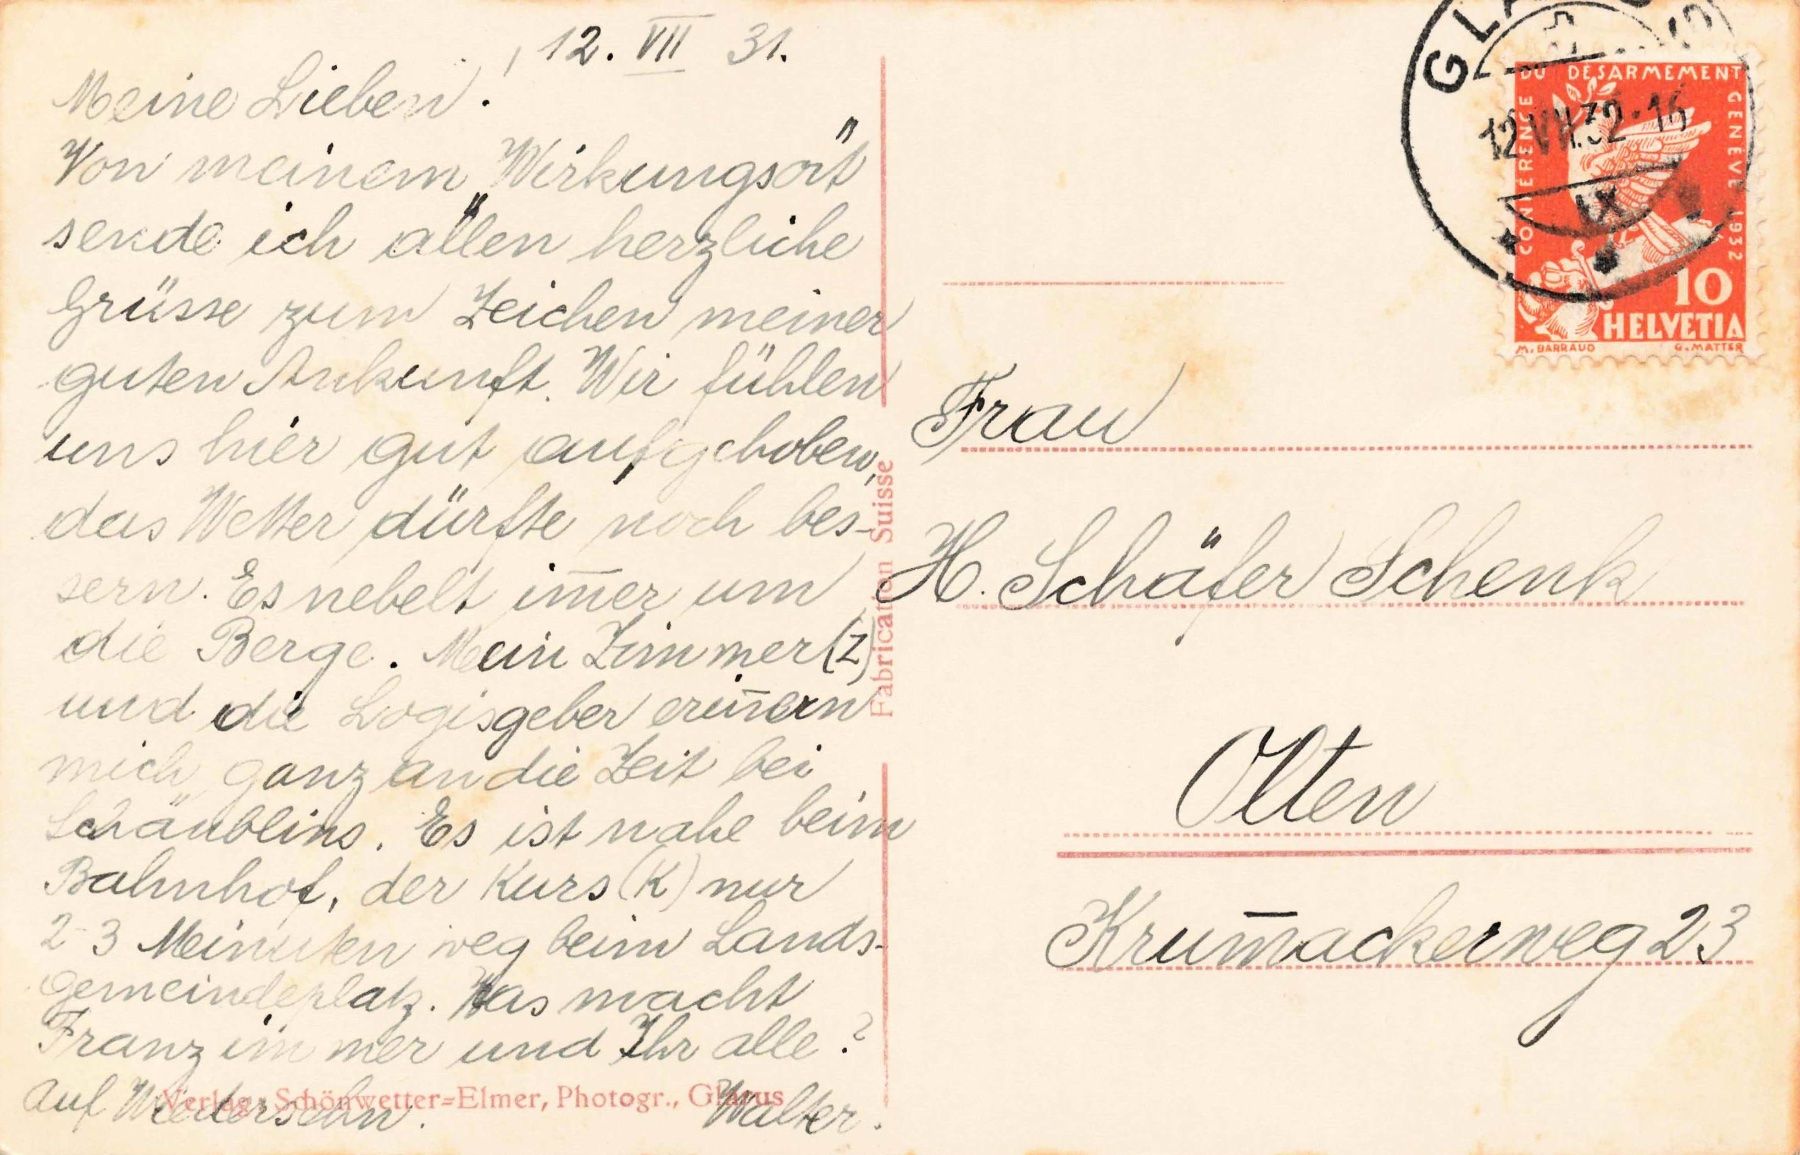 12. VII 31.
Meine Lieben!
Von meinem "Wirkungsort"
sende ich allen herzliche
Grüsse zum Zeichen meiner
guten Ankunft. Wir fühlen
uns hier gut aufgehoben,
das Wetter dürfte noch bes-
sern. Es nebelt im̅er um
die Berge. Mein Zimmer (Z)
und die Logisgeber erin̅ern
mich ganz an die Zeit bei
Schäublins. Es ist nahe beim
Bahnhof, der Kurs (K) nur
2-3 Meinuten weg beim Lands-
gemeindeplatz. Was macht
Franz immer und Ihr alle?
Auf Wiedersehn. Walter.
Verlag: Schönwetter=Elmer, Photogr., Glarus
Fabrication Suisse
12 VII.32-16
IX
CONFERENCE DU DESARMEMENT GENEVE 1932
10
HELVETIA
M. BARRAUD G. MATTER
Frau
H. Schäfer Schenk
Olten
Krum̅ackerweg 23